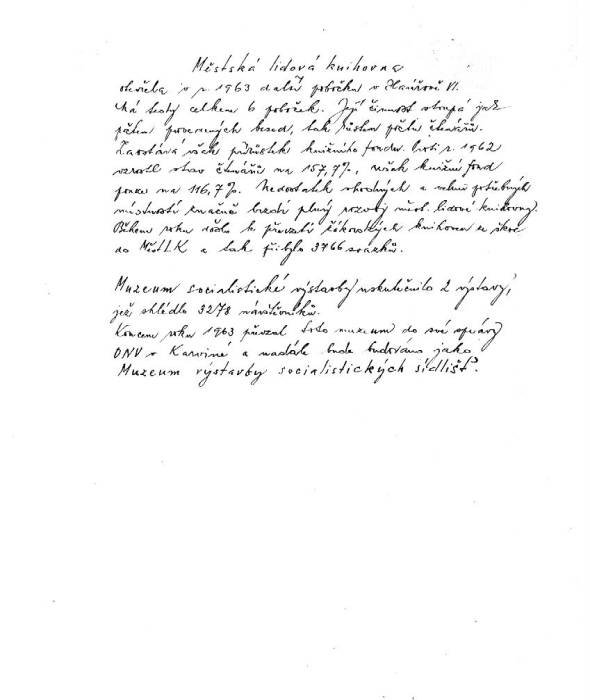 Městská lidová knihovna
otevřela v r. 1963 další pobočku v Havířově VI.
Má tedy celkem 6 poboček. Její činnost stoupá jak
počtem besed, tak růstem počtu čtenářů.
Zaostává však přírůstek knižního fondu. Proti r. 1962
vzrostl stav čtenářů na 157,7%, však knižní fond
pouze na 116,7%. Nedostatek vhodných a velmi potřebných
místností značně brzdí plný rozvoj měst. lidové knihovny.
Během roku došlo k převzetí žákovských knihoven ze škol
do MěstLK a tak přibylo 3766 svazků.
Muzeum socialistické výstavby uskutečnilo 2 výstavy,
jež shlédlo 3278 návštěvníků.
Koncem roku 1963 převzal toto muzeum do své správy
ONV v Karviné a nadále bude budováno jako
Muzeum výstavby socialistických sídlišť.